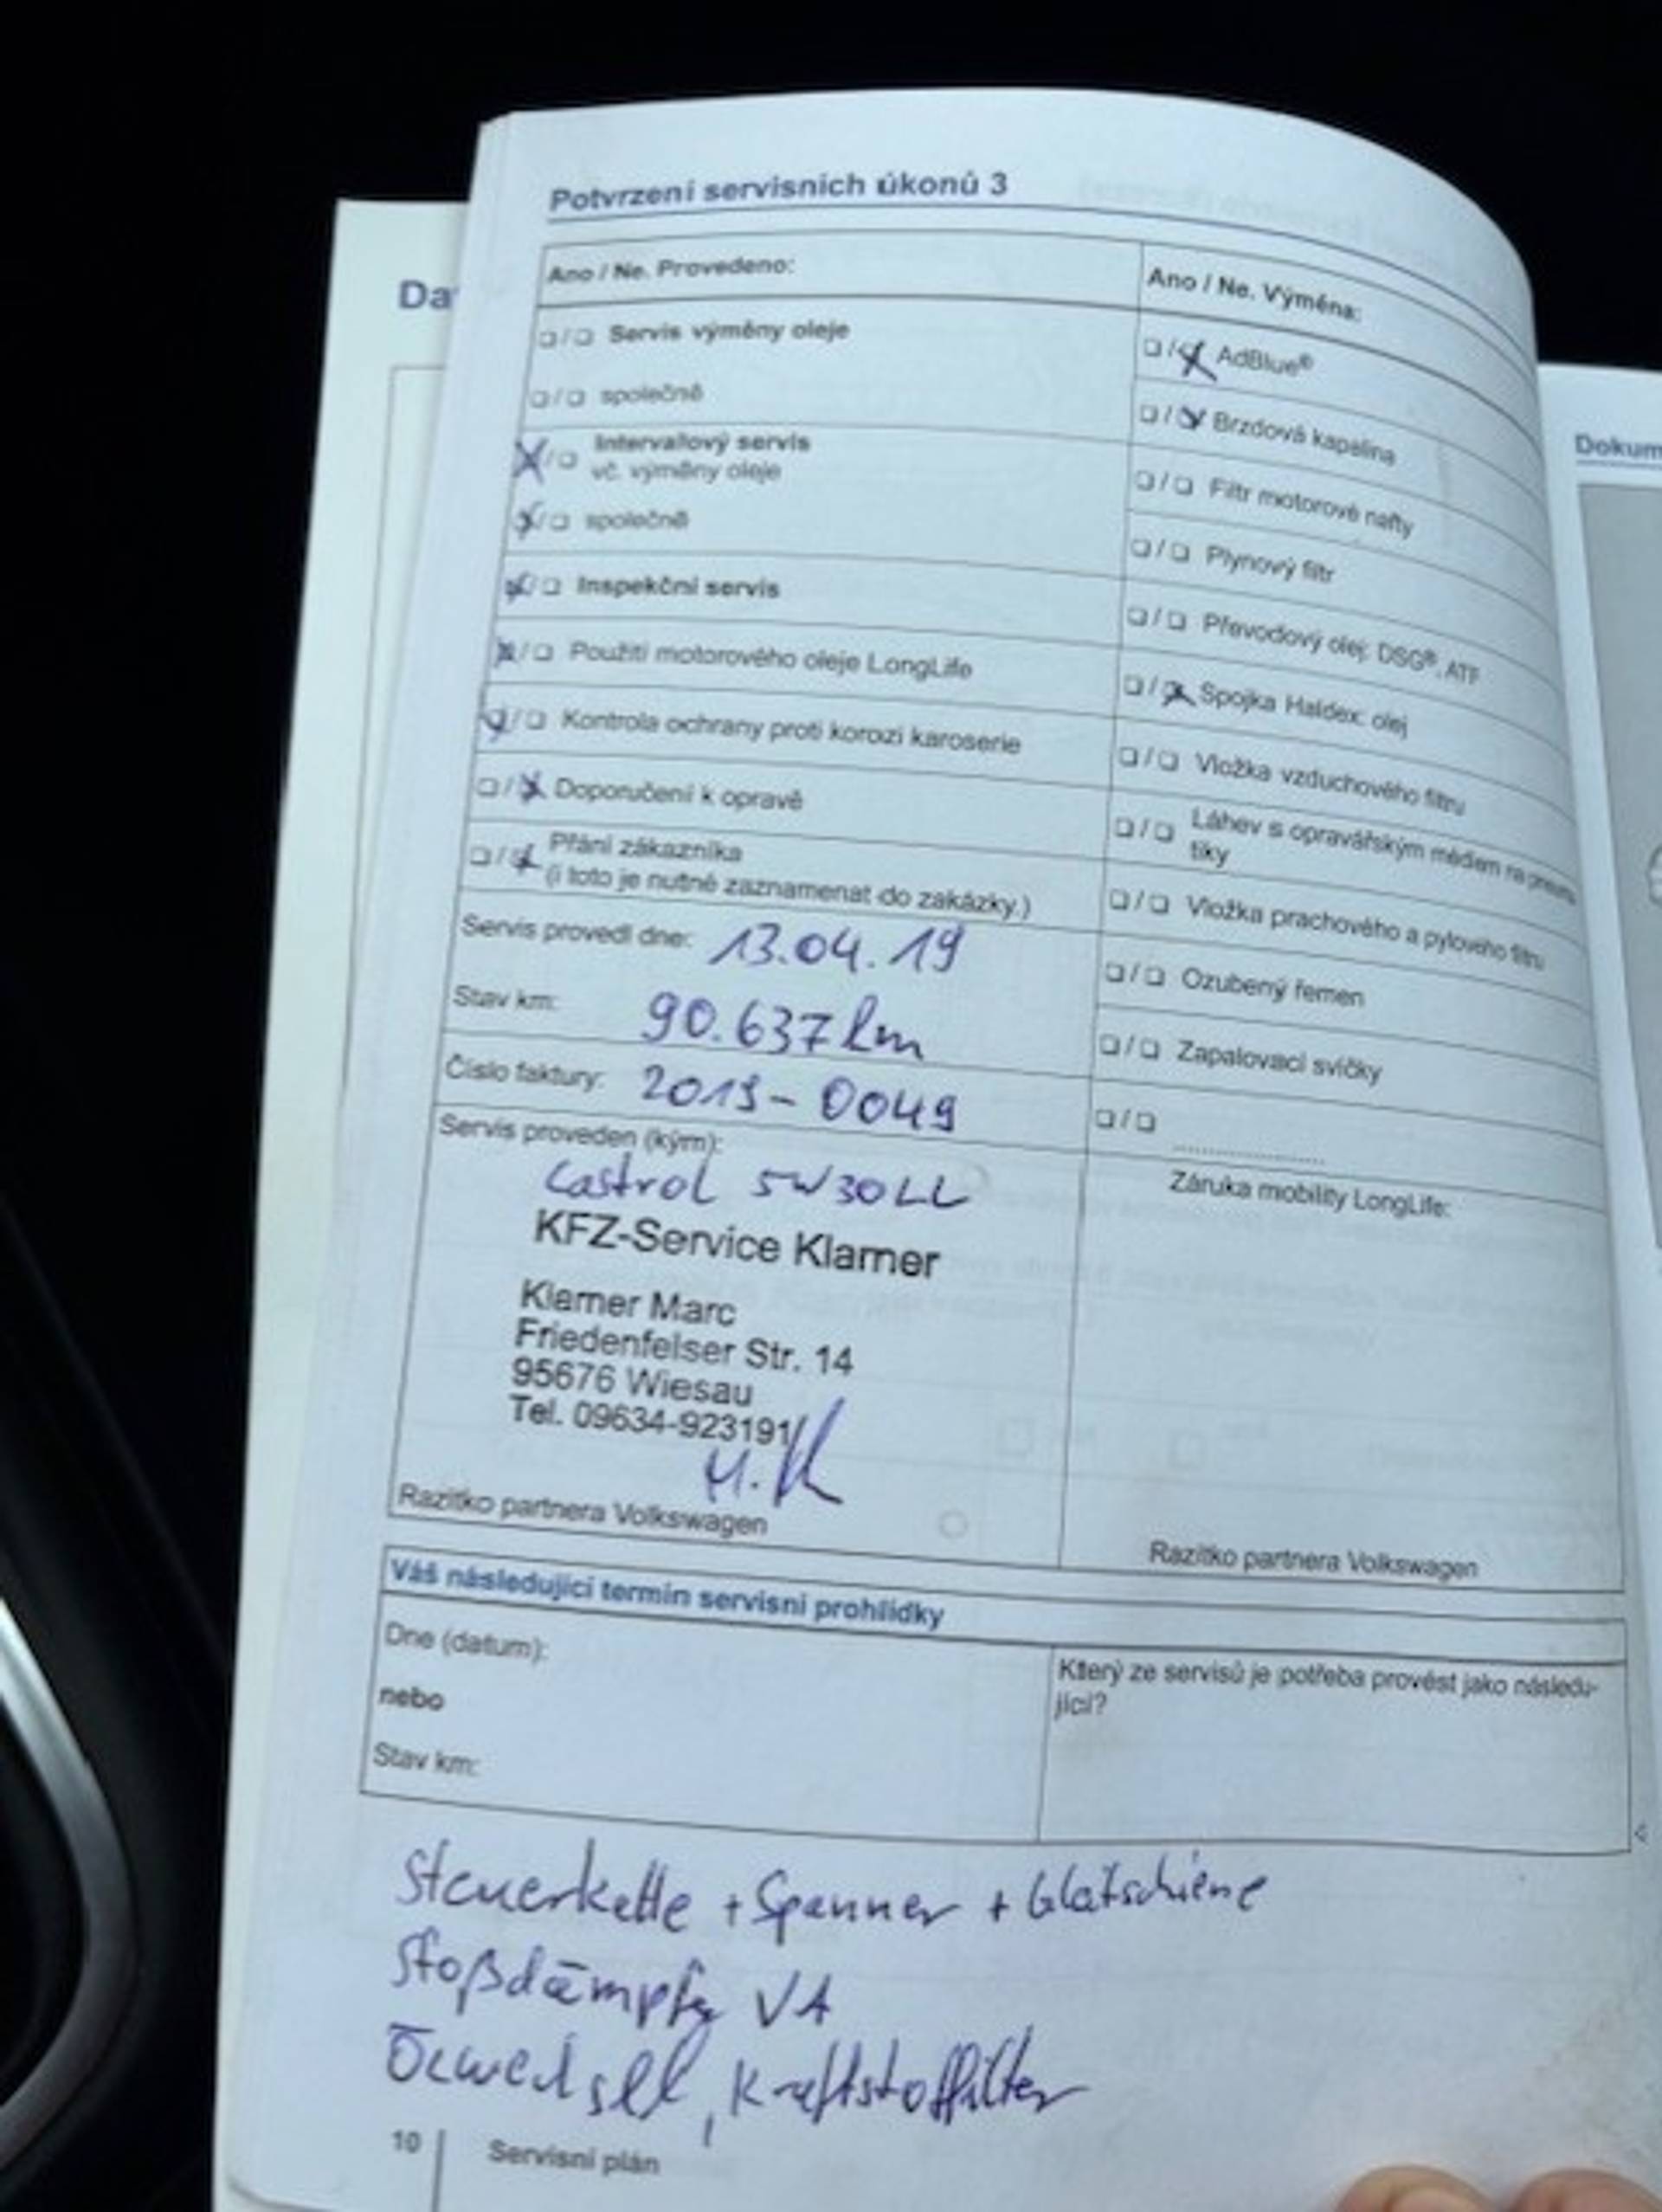 Potvrzení servisních úkonů 3
Da
Ano / Ne. Provedeno:
❏/❏ Servis výměny oleje
❏/❏ společně
☒/❏ Intervallový servis
vč. výměny oleje
☒/❏ společně
☒/❏ Inspekční servis
☒/❏ Použití motorového oleje LongLife
☒/❏ Kontrola ochrany proti korozi karoserie
❏/☒ Doporučení k opravě
❏/☒ Přání zákazníka
(i toto je nutné zaznamenat do zakázky.)
Servis provedl dne: 13.04.19
Stav km: 90.637 km
Číslo faktury: 2019-0049
Servis proveden (kým):
Castrol 5W30LL
KFZ-Service Klarner
Klarner Marc
Friedenfelser Str. 14
95676 Wiesau
Tel. 09634-923191
M. K
Razítko partnera Volkswagen
Ano / Ne. Výměna:
❏/☒ AdBlue®
❏/☒ Brzdová kapalina
❏/❏ Filtr motorové nafty
❏/❏ Plynový filtr
❏/❏ Převodový olej: DSG®, ATF
❏/☒ Spojka Haldex: olej
❏/❏ Vložka vzduchového filtru
❏/❏ Láhev s opravářským médiem na pneuma
tiky
❏/❏ Vložka prachového a pylového filtru
❏/❏ Ozubený řemen
❏/❏ Zapalovací svíčky
❏/❏ ....................
Záruka mobility LongLife:
Razítko partnera Volkswagen
Váš následující termín servisní prohlídky
Dne (datum):
nebo
Stav km:
Který ze servisů je potřeba provést jako následu-
jící?
Steuerkette + Spanner + Gleitschiene
Stoßdämpfer VA
Ölwechsel, Kraftstoffilter
10 Servisní plán
Dokum